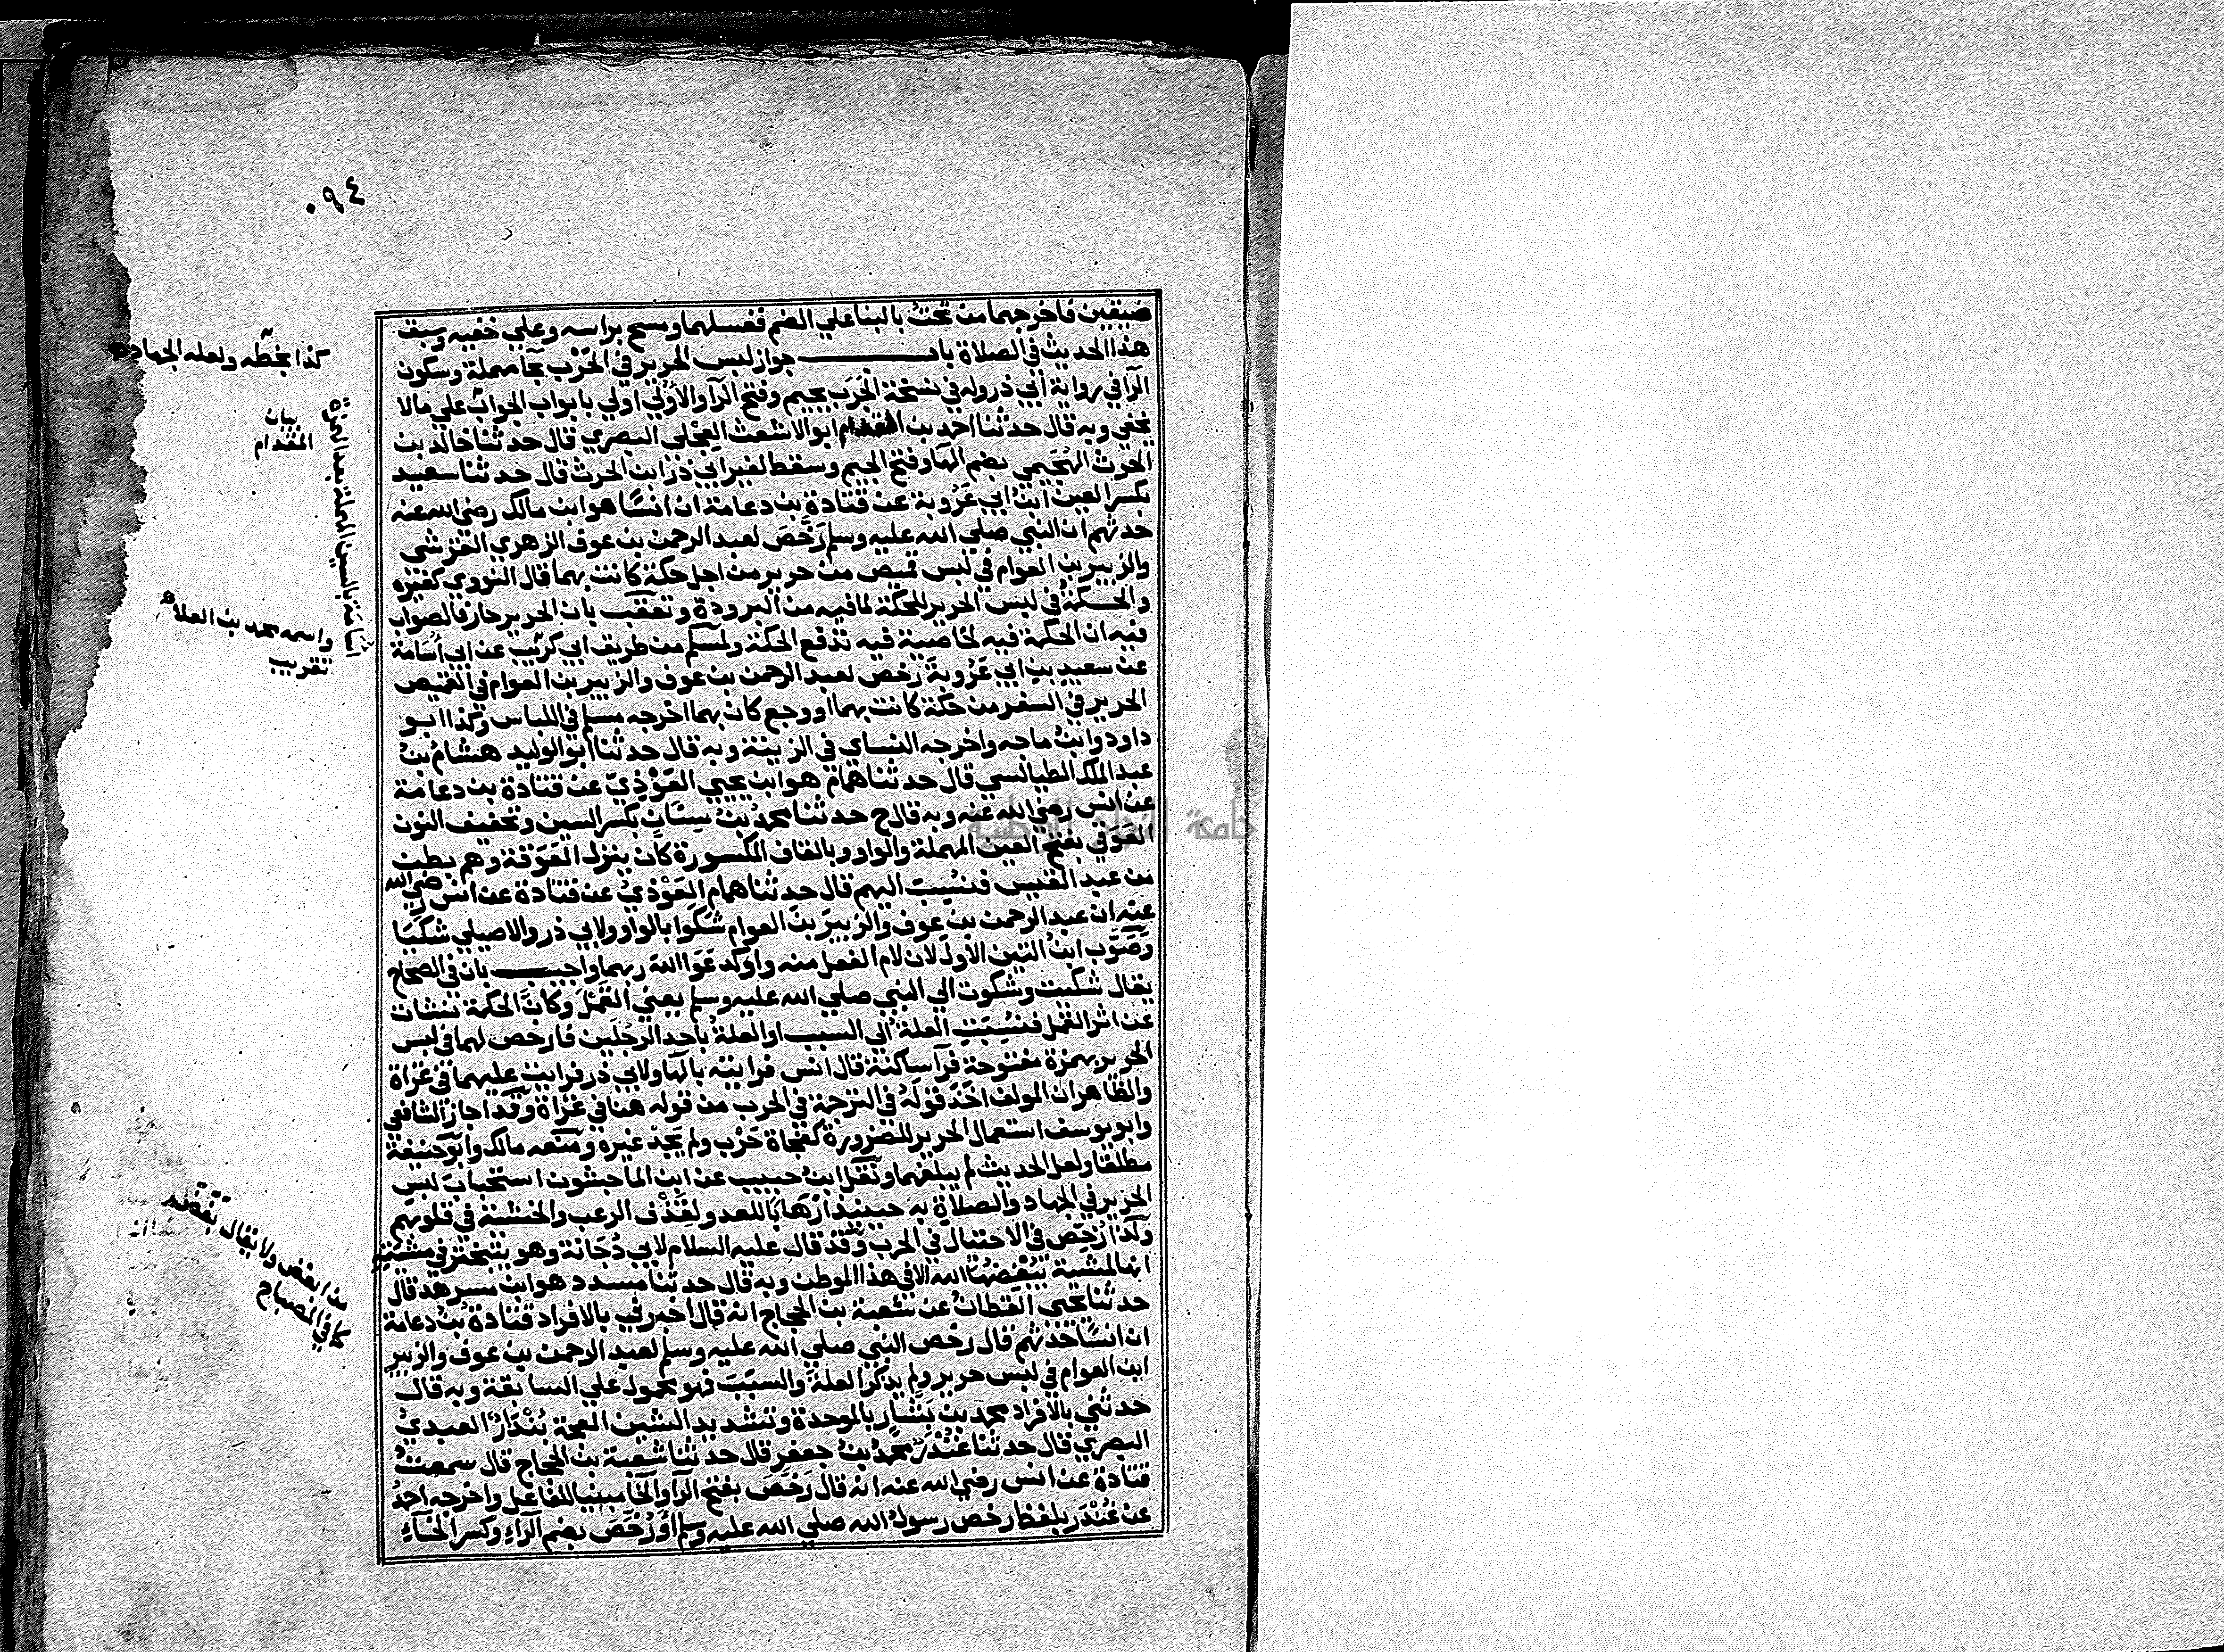 ٠٩٤
ضيقين فاخرجهما من تحتُ بالبنا علي الضم فغسلهما ومسح براسه وعلي خفيه وسبق
هذا الحديث في الصلاة باب جواز لبس الحرير في الحَرْب بحآ مهملة وسكون
الرآ في رواية ابي ذر وله في نسخة الجَرَب بجيم وفتح الرآ والأولي اولي بابواب الجواب علي مالا
يخفي وبه قال حدثنا احمد بن المقدام ابو الاشعث العِجْلي البصري قال حدثنا خالد بن
الحرث الهُجَيمي بضم الهآ وفتح الجيم وسقط لغير ابي ذر ابن الحرث قال حدثنا سعيد
بكسر العين ابنُ ابي عَرُوبة عن قتادة بن دعامة ان انسًا هو ابن مالك رضي الله عنه
حدثهم ان النبي صلي الله عليه وسلم رَخَّصَ لعبد الرحمن بن عوف الزهري القرشي
والزبير بن العوام في لبس قميص من حرير من اجل حكة كانت بهما قال النووي كغيره
والحكمةُ في لبس الحرير للحكّة لما فيه من البرودة وتعقب بان الحرير حار فالصواب
فيه ان الحكمة فيه لخاصية فيه تدفع الحكة ولمسلم من طريق ابي كريب عن ابي اُسَامة
عن سعيد بن ابي عَرُوبَةَ رخص لعبد الرحمن بن عوف والزبير بن العوام في القميص
الحرير في السفر من حكّة كانت بهما او وجع كان بهما اخرجه مسلم في اللباس وكذا ابو
داود وابنُ ماجه واخرجه النساي في الزينة وبه قال حدثنا ابو الوليد هشامُ بنُ
عبد الملك الطيالسي قال حدثنا همام هو ابن يحيي العَوْذِيّ عن قتادة بن دعامة
عن انس رضي الله عنه وبه قال ح حدثنا محمدُ بنُ سِنَانٍ بكسر السين وتخفيف النون
العَوَقي بفتح العين المهملة والواو وبالقاف المكسورة كان ينزل العَوَقة وهم بطن
من عبد القيس فنُسِبَ اليهم قال حدثنا همام العَوْذيُّ عن قتادة عن انس رضي الله
عنه ان عبد الرحمن بن عوف والزبيرَ بنَ العوام شَكَوا بالواو ولابي ذر والاصيلي شكَيَا
وصَوَّب ابنُ التين الأولَ لان لام الفعل منه واو كدَعَوَا اللهَ ربهما واجيب بان في الصحاح
يقال شكيت وشكوت الي النبي صلي الله عليه وسلم يعني القَمْلَ وكانت الحكة تنشأت
عن اثر القمل فنُسِبَتِ العلة الي السبب او العلةُ باحد الرجُلَين فارخص لهما في لبس
الحرير بهمزة مفتوحة فرآ ساكنة قال انس فرايته بالهآ ولابي ذر فرايت عليهما في غزاة
والظاهر ان المولف اَخَذَ قولَهُ في الترجمة في الحرب من قوله هنا في غزاة وقد اجاز الشافعي
وابو يوسف استعمال الحرير للضرورة كفجاة حَرْب ولم يَجدْ غيره ومنعه مالك وابو حنيفة
مطلقا ولعل الحديث لم يبلغهما ونَقَل ابنُ حبيب عن ابن الماجشون استحبابَ لبس
الحرير في الجهاد والصلاةِ به حينئذ ارهابًا للعدو ولقَذْف الرعب والخشية في قلوبهم
ولذا رُخِّص في الاختيال في الحرب وقد قال عليه السلام لابي دُجَانة وهو يتبختر في مشيته
انها لمشية يُبْغِضُهَا الله الا في هذا الموطن وبه قال حدثنا مسدد هو ابن مسرهد قال
حدثنا يحيي القطانُ عن شعبة بن الحجاج انه قال اخبرني بالافراد قتادة بنُ دعامة
ان انسًا حدثهم قال رخص النبي صلي الله عليه وسلم لعبد الرحمن بن عوف والزبير
ابن العوام في لبس حرير ولم يذكر العلةَ والسبَبَ فهو محمول علي السابقة وبه قال
حدثني بالافراد محمد بن بَشَّارٍ بالموحدة وتشديد الشين المعجمة بُنْدَارٌ العبديُّ
البصري قال حدثنا غُنْدَرٌ محمدُ بنُ جعفر قال حدثنا شعبة بن الحجاج قال سمعتُ
قتادة عن انس رضي الله عنه انه قال رَخَّصَ بفتح الرآ والخآ مبنيا للفاعل واخرجه احمدُ
عن غُنْدَر بلفظ رخص رسولُ الله صلي الله عليه وسلم اَوْ رُخِّصَ بضم الرآءِ وكسر الخآءِ
كذا بخطّه ولعله الجهاد
بيان
المقدام
اُسَامَة بالسين المهملة بعد الهمزة
واسمه محمد بن العلاء
تقريب
من ابغض ولا يقال بغضته
كما في المصباح